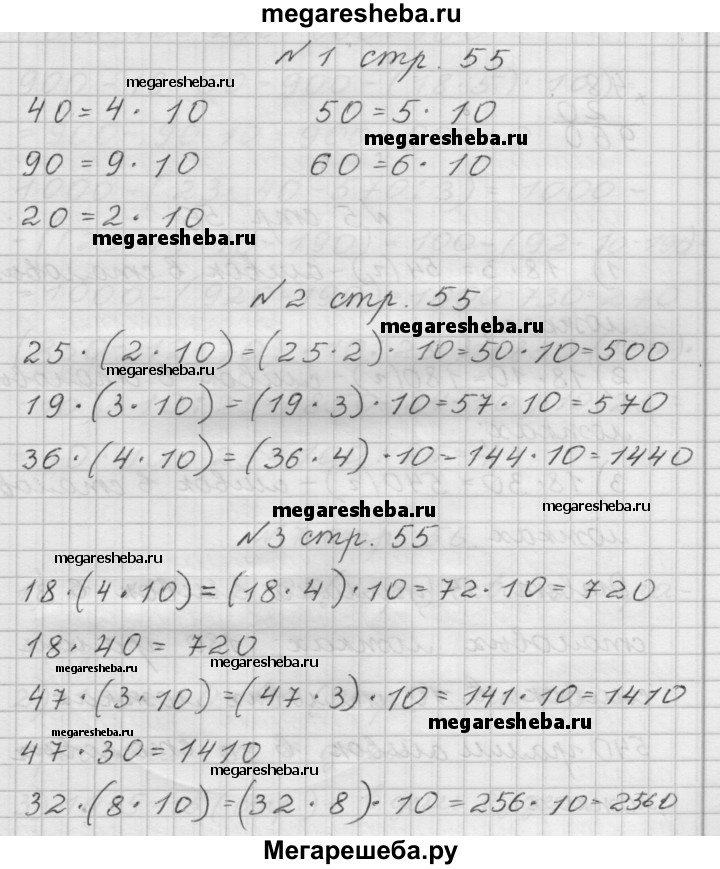 megaresheba.ru
№1 стр. 55
megaresheba.ru
40=4·10 50=5·10
megaresheba.ru
90=9·10 60=6·10
20=2·10
megaresheba.ru
№2 стр. 55
megaresheba.ru
25·(2·10)=(25·2)·10=50·10=500
megaresheba.ru
19·(3·10)=(19·3)·10=57·10=570
36·(4·10)=(36·4)·10=144·10=1440
megaresheba.ru
megaresheba.ru
№3 стр. 55
megaresheba.ru
18·(4·10)=(18·4)·10=72·10=720
18·40=720
megaresheba.ru
megaresheba.ru
47·(3·10)=(47·3)·10=141·10=1410
megaresheba.ru
megaresheba.ru
47·30=1410
megaresheba.ru
32·(8·10)=(32·8)·10=256·10=2560
Мегарешеба.ру